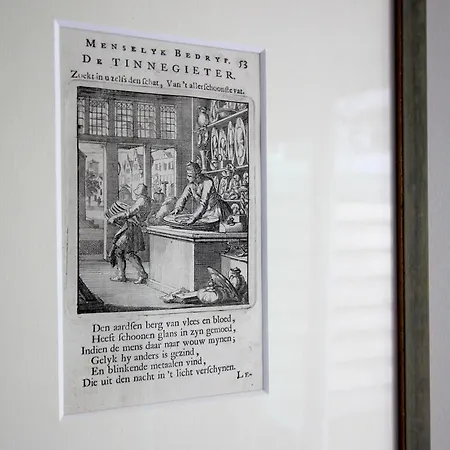 MENSELYK BEDRYF. 53
DE TINNEGIETER.
Zoekt in u zelfs den schat, Van 't allerschoonste vat.
Den aardsen berg van vlees en bloed,
Heeft schoonen glans in zyn gemoed,
Indien de mens daar naar wouw mynen;
Gelyk hy anders is gezind,
En blinkende metaalen vind,
Die uit den nacht in 't licht verschynen.
LE-